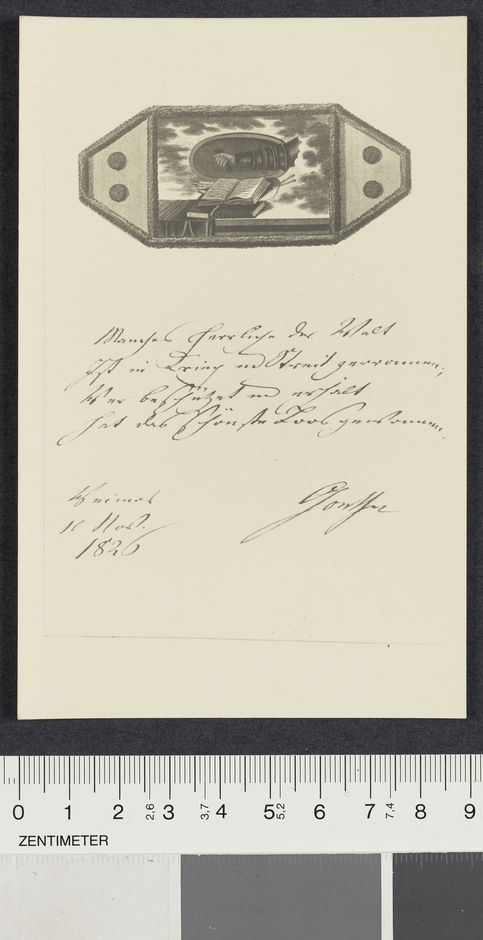 Manches Herrliche der Welt
Ist in Krieg und Streit zerronnen;
Wer beschützet und erhält
Hat das schönste Loos gewonnen.
Weimar
Goethe
1826
0 1 2 2,6 3 3,7 4 5 5,2 6 7 7,4 8 9
ZENTIMETER